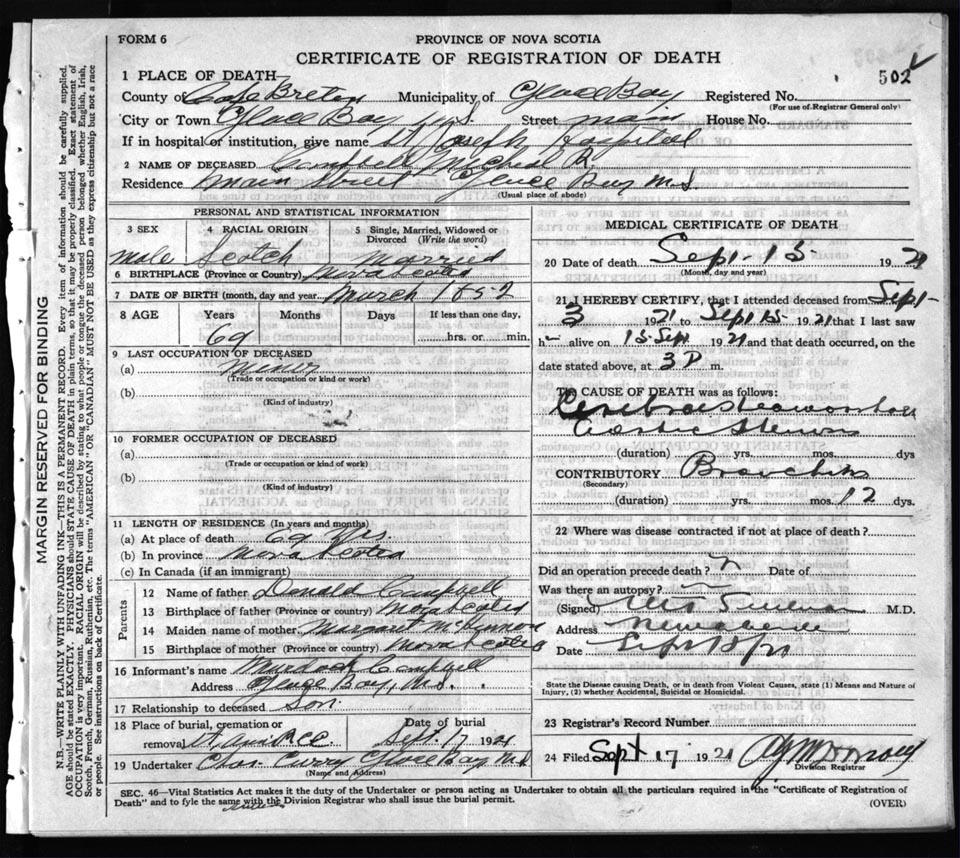 FORM 6
PROVINCE OF NOVA SCOTIA
CERTIFICATE OF REGISTRATION OF DEATH
502
1 PLACE OF DEATH
County of Cape Breton Municipality of Glace Bay Registered No.
(For use of Registrar General only)
City or Town Glace Bay N.S. Street Main House No.
If in hospital or institution, give name St Josephs Hospital
2 NAME OF DECEASED Campbell Michael R.
Residence Main Street Glace Bay N.S.
(Usual place of abode)
PERSONAL AND STATISTICAL INFORMATION
3 SEX 4 RACIAL ORIGIN 5 Single, Married, Widowed or Divorced (Write the word)
male Scotch Married
6 BIRTHPLACE (Province or Country) Nova Scotia
7 DATE OF BIRTH (month, day and year) March 1852
8 AGE Years Months Days If less than one day,
69 hrs. or min.
9 LAST OCCUPATION OF DECEASED
(a) Miner
(Trade or occupation or kind or work)
(b)
(Kind of industry)
10 FORMER OCCUPATION OF DECEASED
(a)
(Trade or occupation or kind of work)
(b)
(Kind of industry)
11 LENGTH OF RESIDENCE (In years and months)
(a) At place of death 69 yrs
(b) In province Nova Scotia
(c) In Canada (if an immigrant)
Parents
12 Name of father Donald Campbell
13 Birthplace of father (Province or country) Nova Scotia
14 Maiden name of mother Margaret McKinnon
15 Birthplace of mother (Province or country) Nova Scotia
16 Informant's name Murdoch Campbell
Address Glace Bay, N.S.
17 Relationship to deceased son
18 Place of burial, cremation or removal Date of burial
Sept. 17 1921
19 Undertaker Chas. Curry Glace Bay N.S
(Name and Address)
MEDICAL CERTIFICATE OF DEATH
20 Date of death Sept. 15 1921
(Month, day and year)
21 I HEREBY CERTIFY, that I attended deceased from Sept-
3 1921 to Sept 15 1921 that I last saw
h alive on 15 Sept 1921 and that death occurred, on
date stated above, at 3 P m.
To CAUSE OF DEATH was as follows:
Cerebral
(duration) yrs. mos. dys
CONTRIBUTORY Bronchitis
(Secondary)
(duration) yrs. mos. 12 dys.
22 Where was disease contracted if not at place of death?
Did an operation precede death? Date of
Was there an autopsy?
(Signed) M.D.
Address New Aberdeen
Date
State the Disease causing Death, or in death from Violent Causes, state (1) Means and Nature of
Injury, (2) whether Accidental, Suicidal or Homicidal.
23 Registrar's Record Number
24 Filed Sept 17 1921
Division Registrar
SEC. 46—Vital Statistics Act makes it the duty of the Undertaker or person acting as Undertaker to obtain all the particulars required in the "Certificate of Registration of
Death" and to fyle the same with the Division Registrar who shall issue the burial permit.
(OVER)
MARGIN RESERVED FOR BINDING
N.B.—WRITE PLAINLY WITH UNFADING INK—THIS IS A PERMANENT RECORD. Every item of information should be carefully supplied.
AGE should be stated EXACTLY. PHYSICIANS should STATE CAUSE OF DEATH in plain terms, so that it may be properly classified. Exact statement of
OCCUPATION is very important. RACIAL ORIGIN will be described by stating to what people or tongue the deceased person belonged whether English, Irish,
Scotch, French, German, Russian, Ruthenian, etc. The terms "AMERICAN" OR "CANADIAN" MUST NOT BE USED as they express citizenship but not a race
or people. See instructions on back of Certificate.